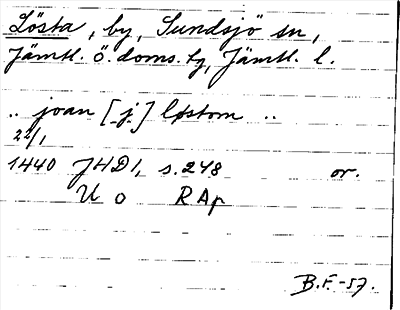 Lösta, by, Sundsjö sn,
Jämtl. ö. doms. tg, Jämtl. l.
.. joan [j.] løstom ..
22/1
1440 JHD 1, s. 248 or.
U o RAp
B.F.-57.